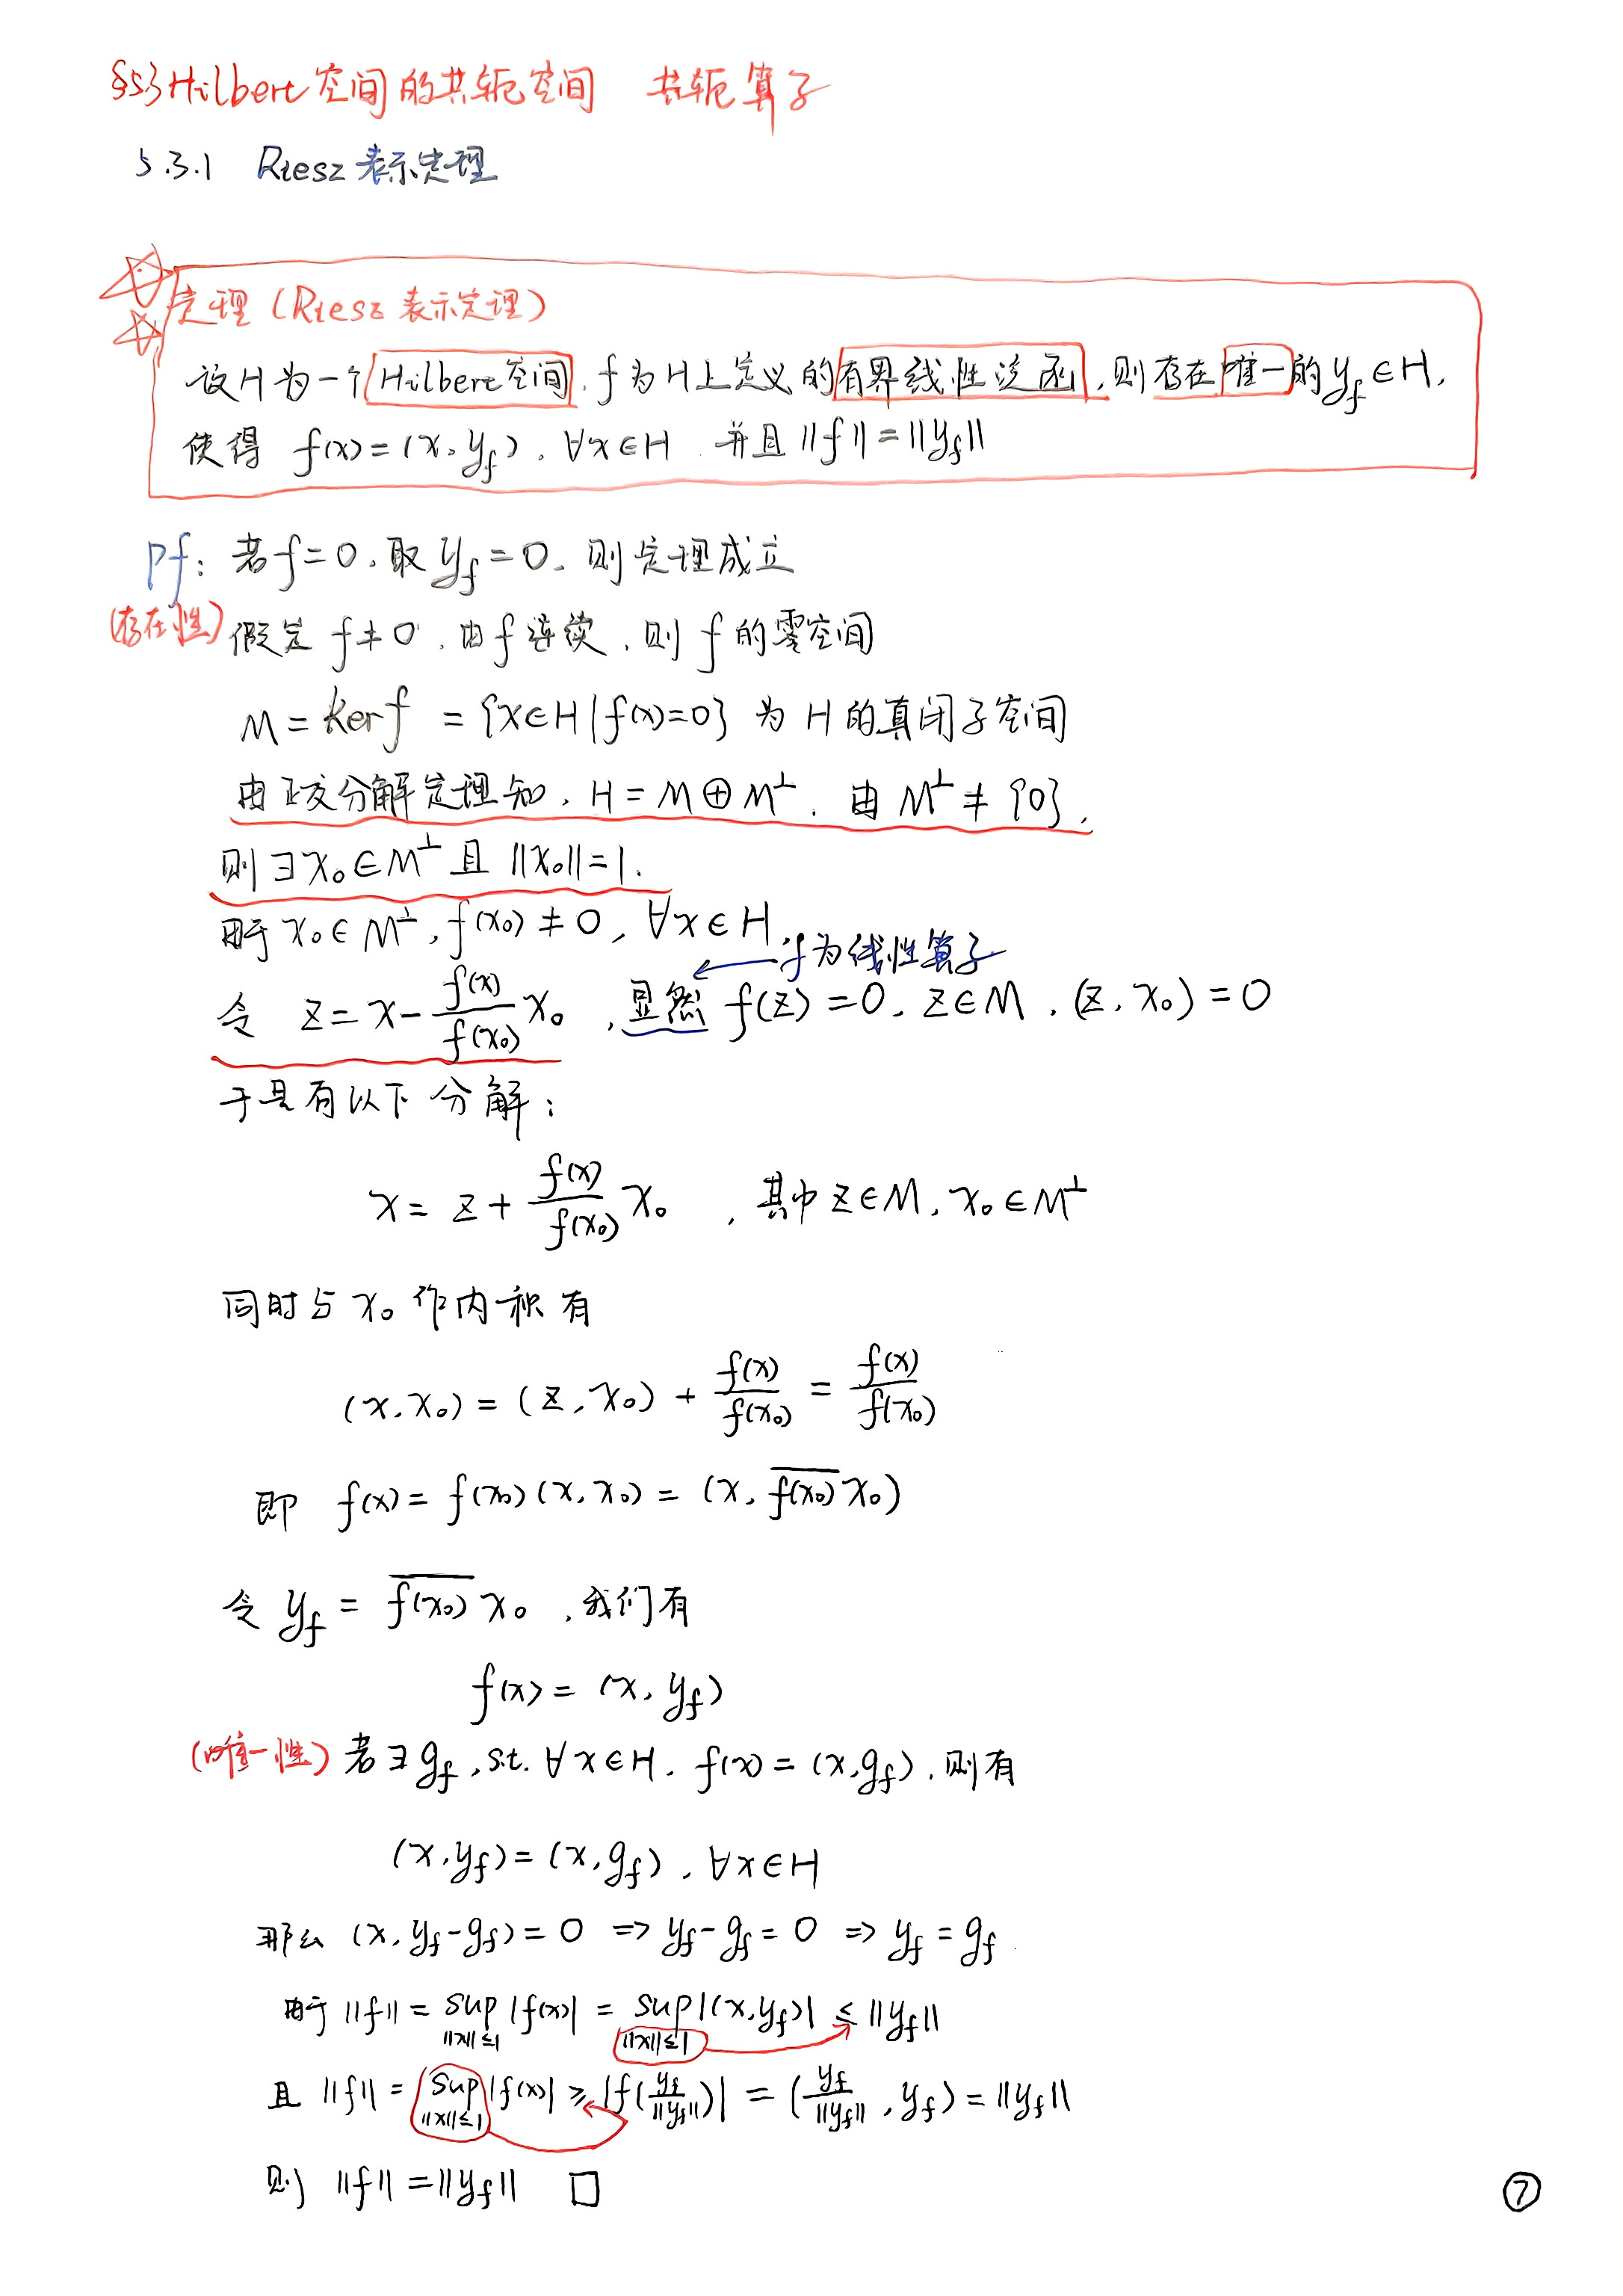 §5.3 Hilbert空间的共轭空间 共轭算子
5.3.1 Riesz表示定理
定理(Riesz表示定理)
设H为一个Hilbert空间, f为H上定义的有界线性泛函,则存在唯一的y_f∈H,
使得 f(x)=(x,y_f), ∀x∈H 并且||f||=||y_f||
pf: 若f=0,取y_f=0,则定理成立
(存在性) 假定f≠0,由f连续,则f的零空间
M=kerf={x∈H|f(x)=0} 为H的真闭子空间
由正交分解定理知, H=M⊕M^⊥. 由M^⊥≠{0},
则∃x₀∈M^⊥且||x₀||=1.
由于x₀∈M^⊥, f(x₀)≠0, ∀x∈H,
f为线性算子
令 z=x-\frac{f(x)}{f(x₀)}x₀, 显然 f(z)=0, z∈M, (z,x₀)=0
于是有以下分解:
x=z+\frac{f(x)}{f(x₀)}x₀, 其中z∈M, x₀∈M^⊥
同时与x₀作内积有
(x,x₀)=(z,x₀)+\frac{f(x)}{f(x₀)}=\frac{f(x)}{f(x₀)}
即 f(x)=f(x₀)(x,x₀)=(x,\overline{f(x₀)}x₀)
令 y_f=\overline{f(x₀)}x₀, 我们有
f(x)=(x,y_f)
(唯一性) 若∃g_f, s.t. ∀x∈H, f(x)=(x,g_f), 则有
(x,y_f)=(x,g_f), ∀x∈H
那么 (x,y_f-g_f)=0 ⇒ y_f-g_f=0 ⇒ y_f=g_f.
由于||f||=\sup_{||x||≤1}|f(x)|=\sup_{||x||≤1}|(x,y_f)|≤||y_f||
且||f||=\sup_{||x||≤1}|f(x)|≥|f(\frac{y_f}{||y_f||})|=(\frac{y_f}{||y_f||},y_f)=||y_f||
则||f||=||y_f|| □
⑦